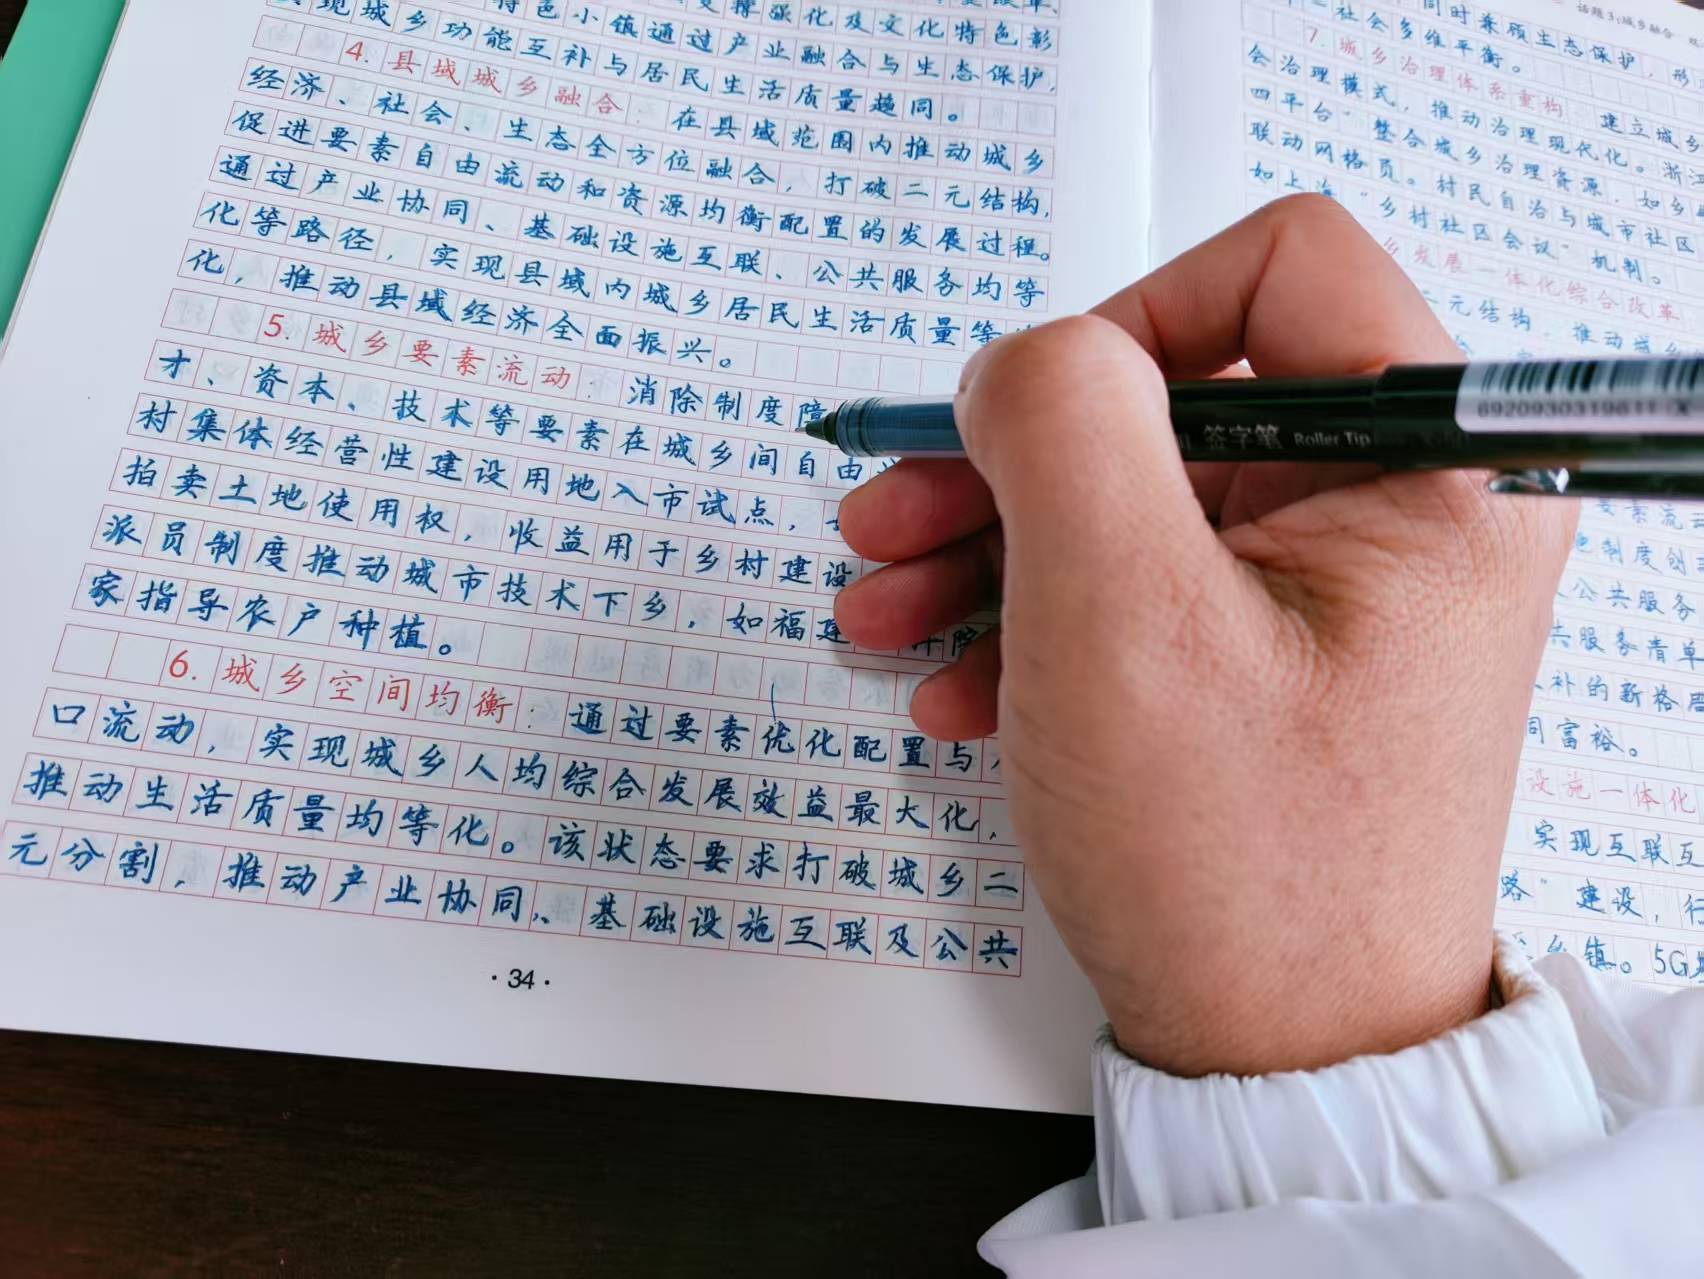 现城乡功能互补与居民生活质量趋同。
特色小镇通过产业融合与生态保护,
强化及文化特色彰
4. 县域城乡融合:在县域范围内推动城乡
经济、社会、生态全方位融合,打破二元结构,
促进要素自由流动和资源均衡配置的发展过程。
通过产业协同、基础设施互联、公共服务均等
化等路径,实现县域内城乡居民生活质量等
化,推动县域经济全面振兴。
5. 城乡要素流动:消除制度障
才、资本、技术等要素在城乡间自由
村集体经营性建设用地入市试点,
拍卖土地使用权,收益用于乡村建设
派员制度推动城市技术下乡,如福建
家指导农户种植。
6. 城乡空间均衡:通过要素优化配置与
口流动,实现城乡人均综合发展效益最大化,
推动生活质量均等化。该状态要求打破城乡二
元分割,推动产业协同、基础设施互联及公共
·34·
话题3:城乡融合
同时兼顾生态保护,形
社会多维平衡。
7. 城乡治理体系重构 建立城乡
会治理模式,推动治理现代化。浙江
四平台"整合城乡治理资源,如乡
联动网格员。村民自治与城市社区
如上海"乡村社区会议"机制。
乡发展一体化综合改革
二元结构,推动城乡
要素流
地制度创
公共服务
共服务清单
补的新格局
同富裕。
设施一体化
实现互联互
路"建设,行
乡镇。5G
签字笔 Roller Tip
6920930319611 X